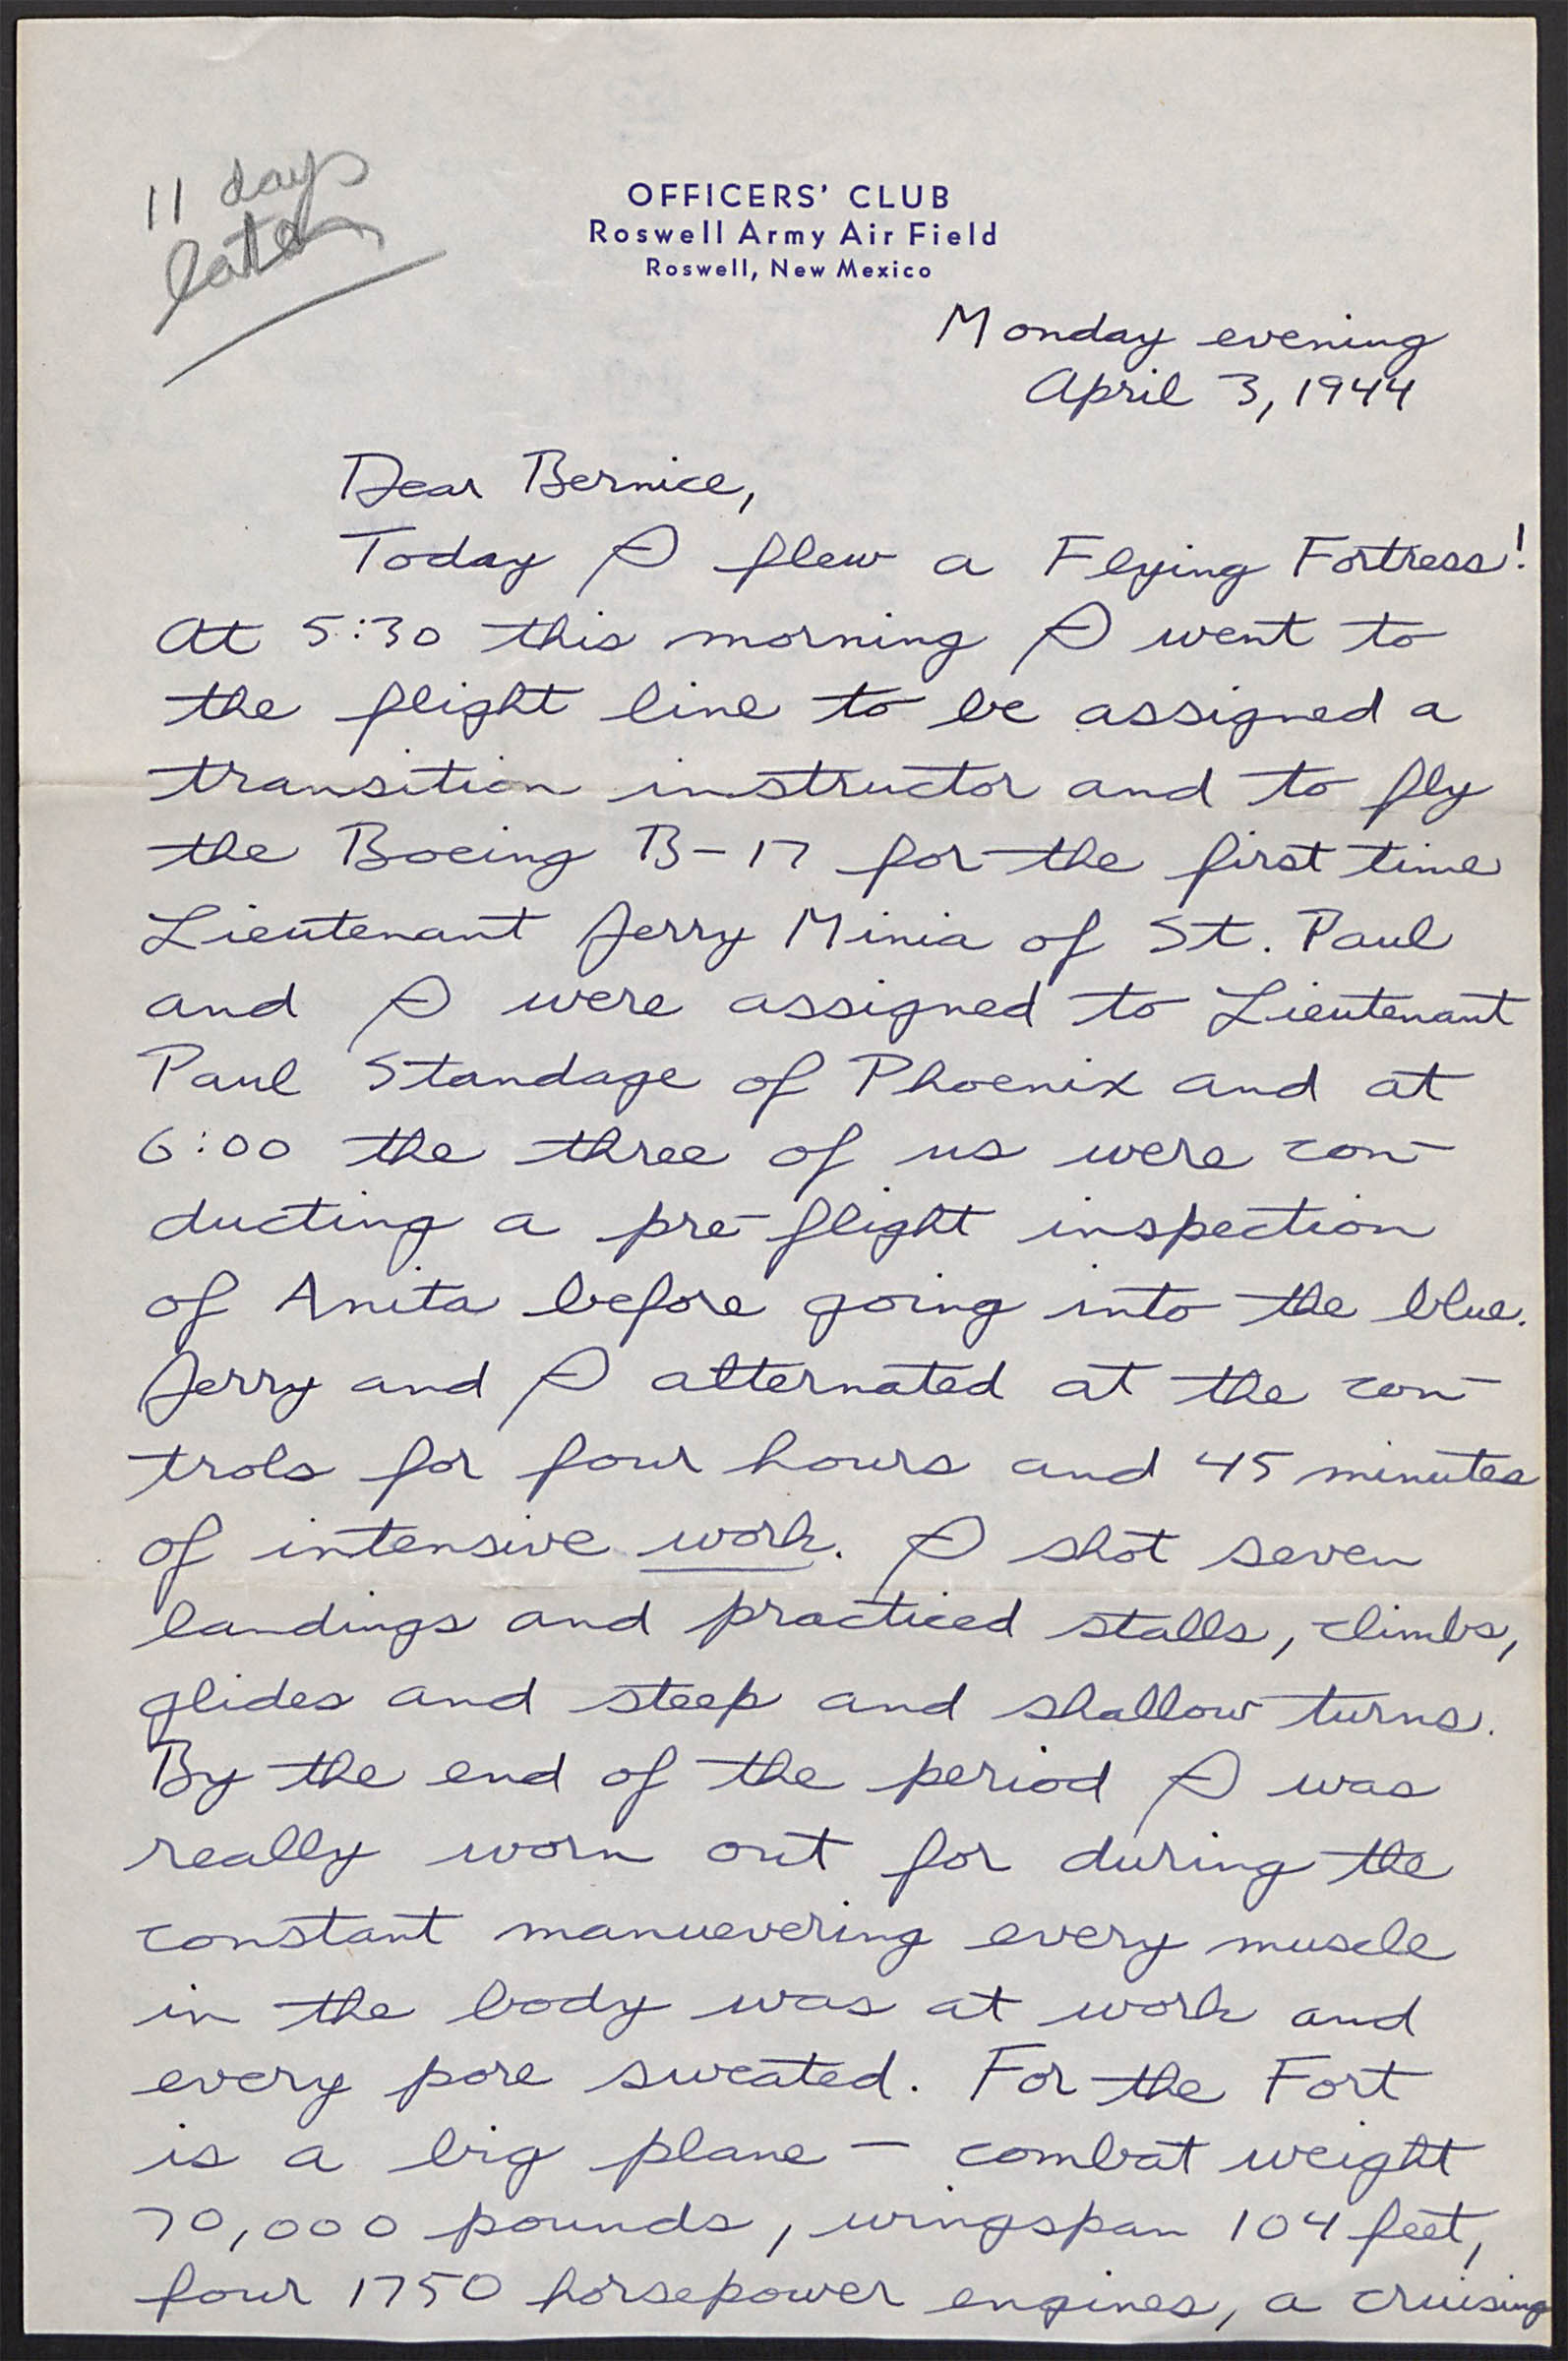 11 days
later
OFFICERS' CLUB
Roswell Army Air Field
Roswell, New Mexico
Monday evening
April 3, 1944
Dear Bernice,
Today I flew a Flying Fortress!
At 5:30 this morning I went to
the flight line to be assigned a
transition instructor and to fly
the Boeing B-17 for the first time
Lieutenant Jerry Minia of St. Paul
and I were assigned to Lieutenant
Paul Standage of Phoenix and at
6:00 the three of us were con-
ducting a pre-flight inspection
of Anita before going into the blue.
Jerry and I alternated at the con-
trols for four hours and 45 minutes
of intensive work. I shot seven
landings and practiced stalls, climbs,
glides and steep and shallow turns.
By the end of the period I was
really worn out for during the
constant manuevering every muscle
in the body was at work and
every pore sweated. For the Fort
is a big plane — combat weight
70,000 pounds, wingspan 104 feet,
four 1750 horsepower engines, a cruising